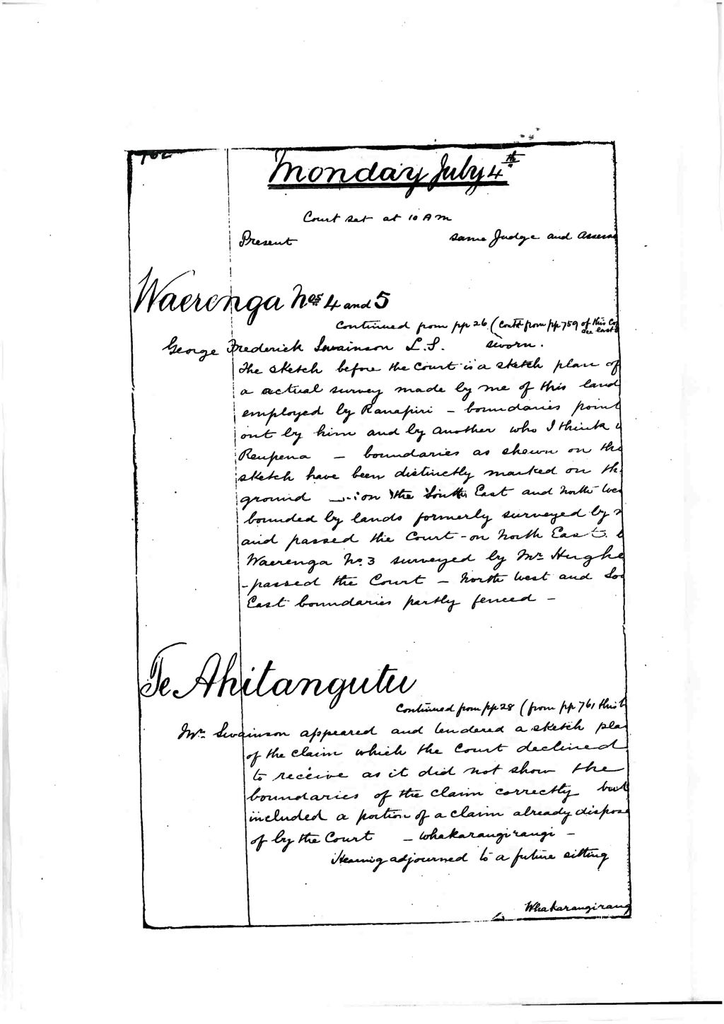 762
Monday July 4th
Court sat at 10 AM
Present same Judge and Assess
Waerenga Nos 4 and 5
Continued from pp 26 (Contd from pp 759 of this
George Frederick Swainson L.S. sworn.
The sketch before the Court is a sketch plan of
a actual survey made by me of this land
employed by Ranapiri – boundaries point
out by him and by another who I think
Reupena – boundaries as shewn on the
sketch have been distinctly marked on the
ground – on the South East and North We
bounded by lands formerly surveyed by
and passed the Court – on North East
Waerenga No. 3 surveyed by Mr Hughe
– passed the Court – North West and So
East boundaries partly fenced –
Te Ahitangutu
Continued from pp 28 (from pp 761 this b
Mr. Swainson appeared and tendered a sketch pla
of the claim which the Court declined
to receive as it did not show the
boundaries of the claim correctly but
included a portion of a claim already dispose
of by the Court – Whakarangirangi –
Hearing adjourned to a future sitting
Whakarangirang